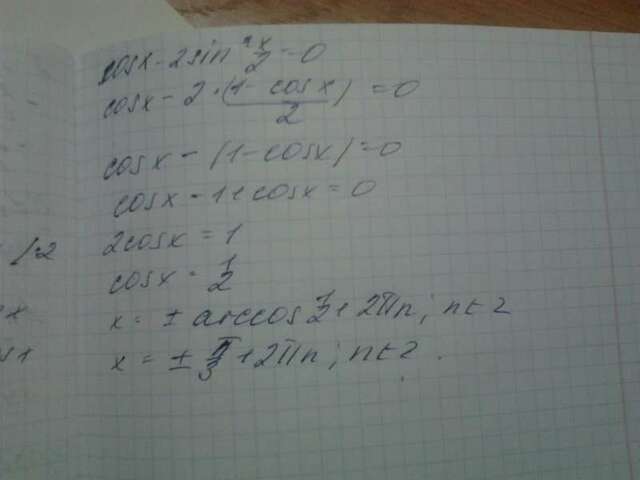 cosx - 2sin² x/2 = 0
cosx - 2 · (1 - cosx)/2 = 0
cosx - (1 - cosx) = 0
cosx - 1 + cosx = 0
2cosx = 1
cosx = 1/2
x = ± arccos 1/2 + 2πn; n∈Z
x = ± π/3 + 2πn; n∈Z.
/:2